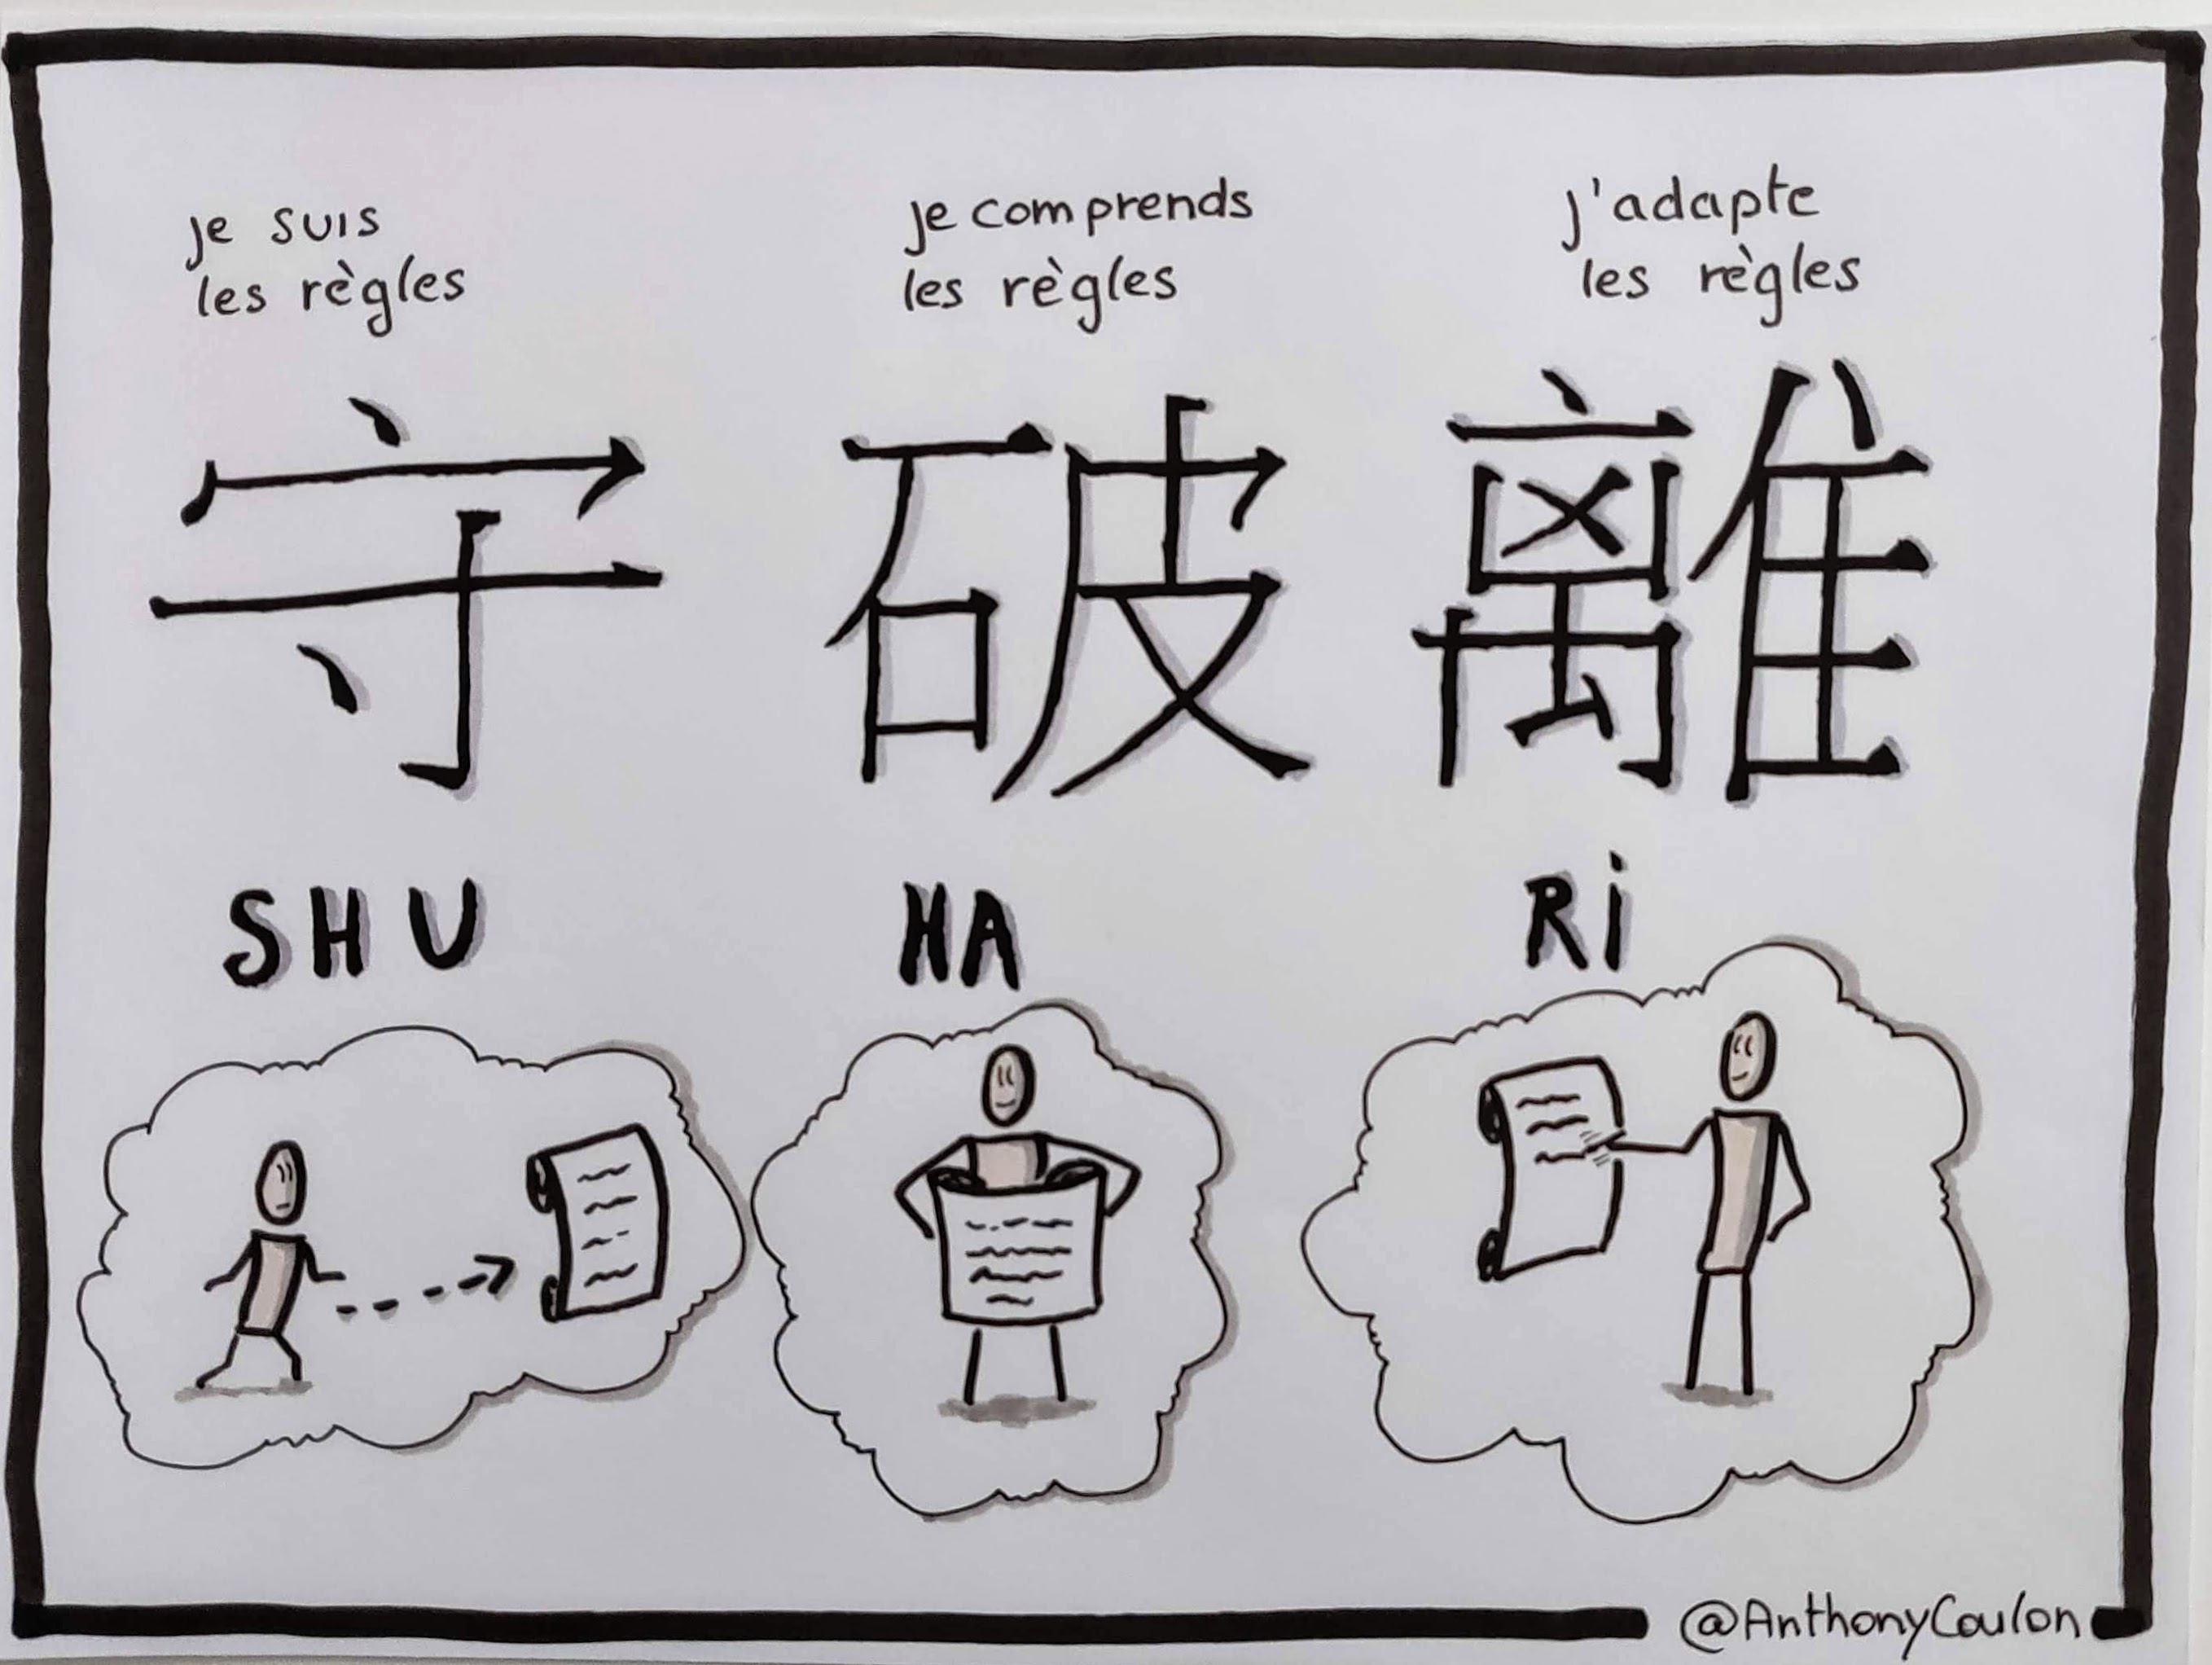 je suis
les règles
je comprends
les règles
j'adapte
les règles
守
破
離
SHU
HA
Ri
@AnthonyCoulon